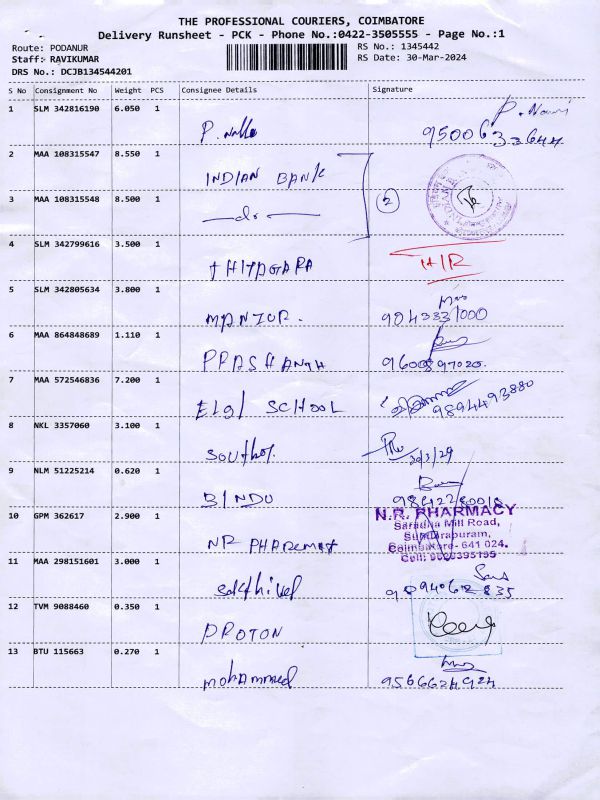 THE PROFESSIONAL COURIERS, COIMBATORE
Delivery Runsheet - PCK - Phone No.:0422-3505555 - Page No.:1
Route: PODANUR
RS No.: 1345442
Staff: RAVIKUMAR
RS Date: 30-Mar-2024
DRS No.: DCJB134544201
S No Consignment No Weight PCS Consignee Details Signature
1 SLM 342816190 6.050 1
95006 33644
2 MAA 108315547 8.550 1 INDIAN BANK
3 MAA 108315548 8.500 1 —do— 2
4 SLM 342799616 3.500 1
5 SLM 342805634 3.800 1 MANZUR. 9843331000
6 MAA 864848689 1.110 1 PRASHANTH 9600897020.
7 MAA 572546836 7.200 1 ELGI SCHOOL 9894493880
8 NKL 3357060 3.100 1
9 NLM 51225214 0.620 1 BINDU
10 GPM 362617 2.900 1 NR PHARMACY
N.R. PHARMACY
Saradha Mill Road,
Sundarapuram,
Coimbatore- 641 024.
11 MAA 298151601 3.000 1 Sakthivel
12 TVM 9088460 0.350 1 PROTON
13 BTU 115663 0.270 1 mohammed 9566624924